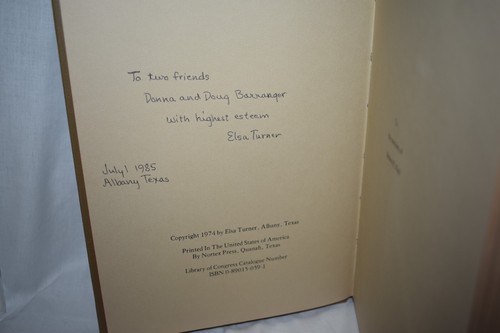 To two friends
Donna and Doug Barranger
with highest esteem
Elsa Turner
July 1 1985
Albany Texas
Copyright 1974 by Elsa Turner, Albany, Texas
Printed In The United States of America
By Nortex Press, Quanah, Texas
Library of Congress Catalogue Number
ISBN 0-89015-059-1